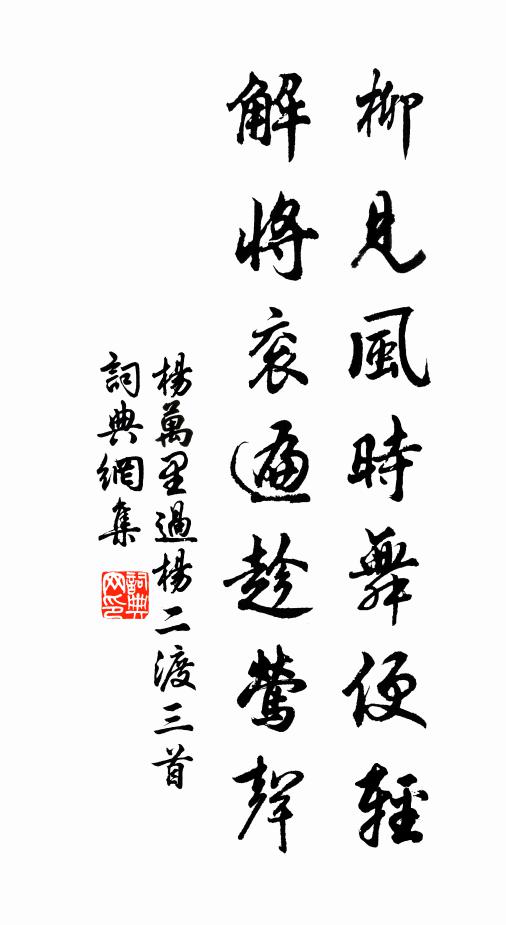 柳見風時舞便輕
解將衮遍趁鶯聲
楊萬里過楊二渡三首
詞典網集
詞典網印